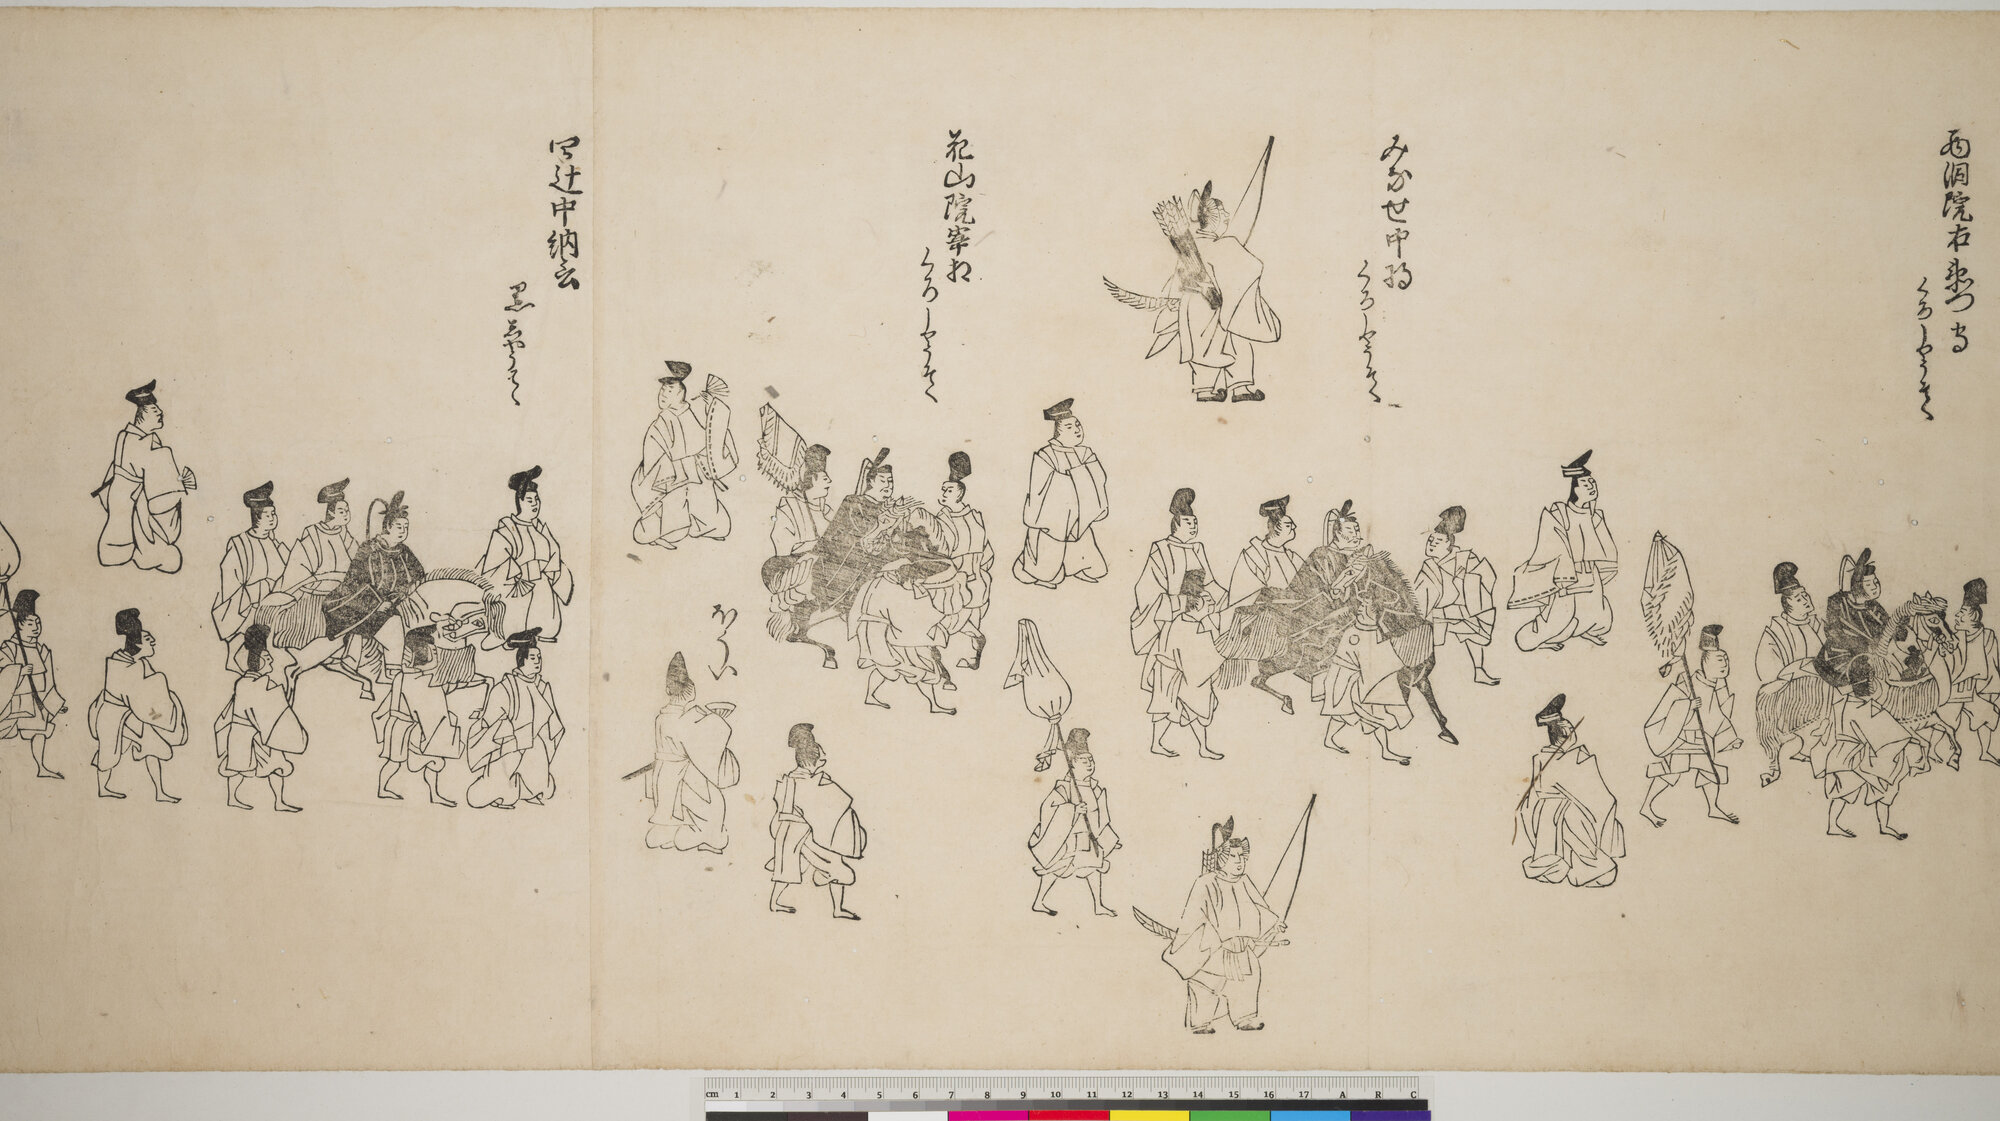 西洞院右衛門守
くろしやうそく
みなせ中将
くろしやうそく
花山院宰相
くろしやうそく
ほうい
四辻中納言
黒しやうそく
cm 1 2 3 4 5 6 7 8 9 10 11 12 13 14 15 16 17 A R C